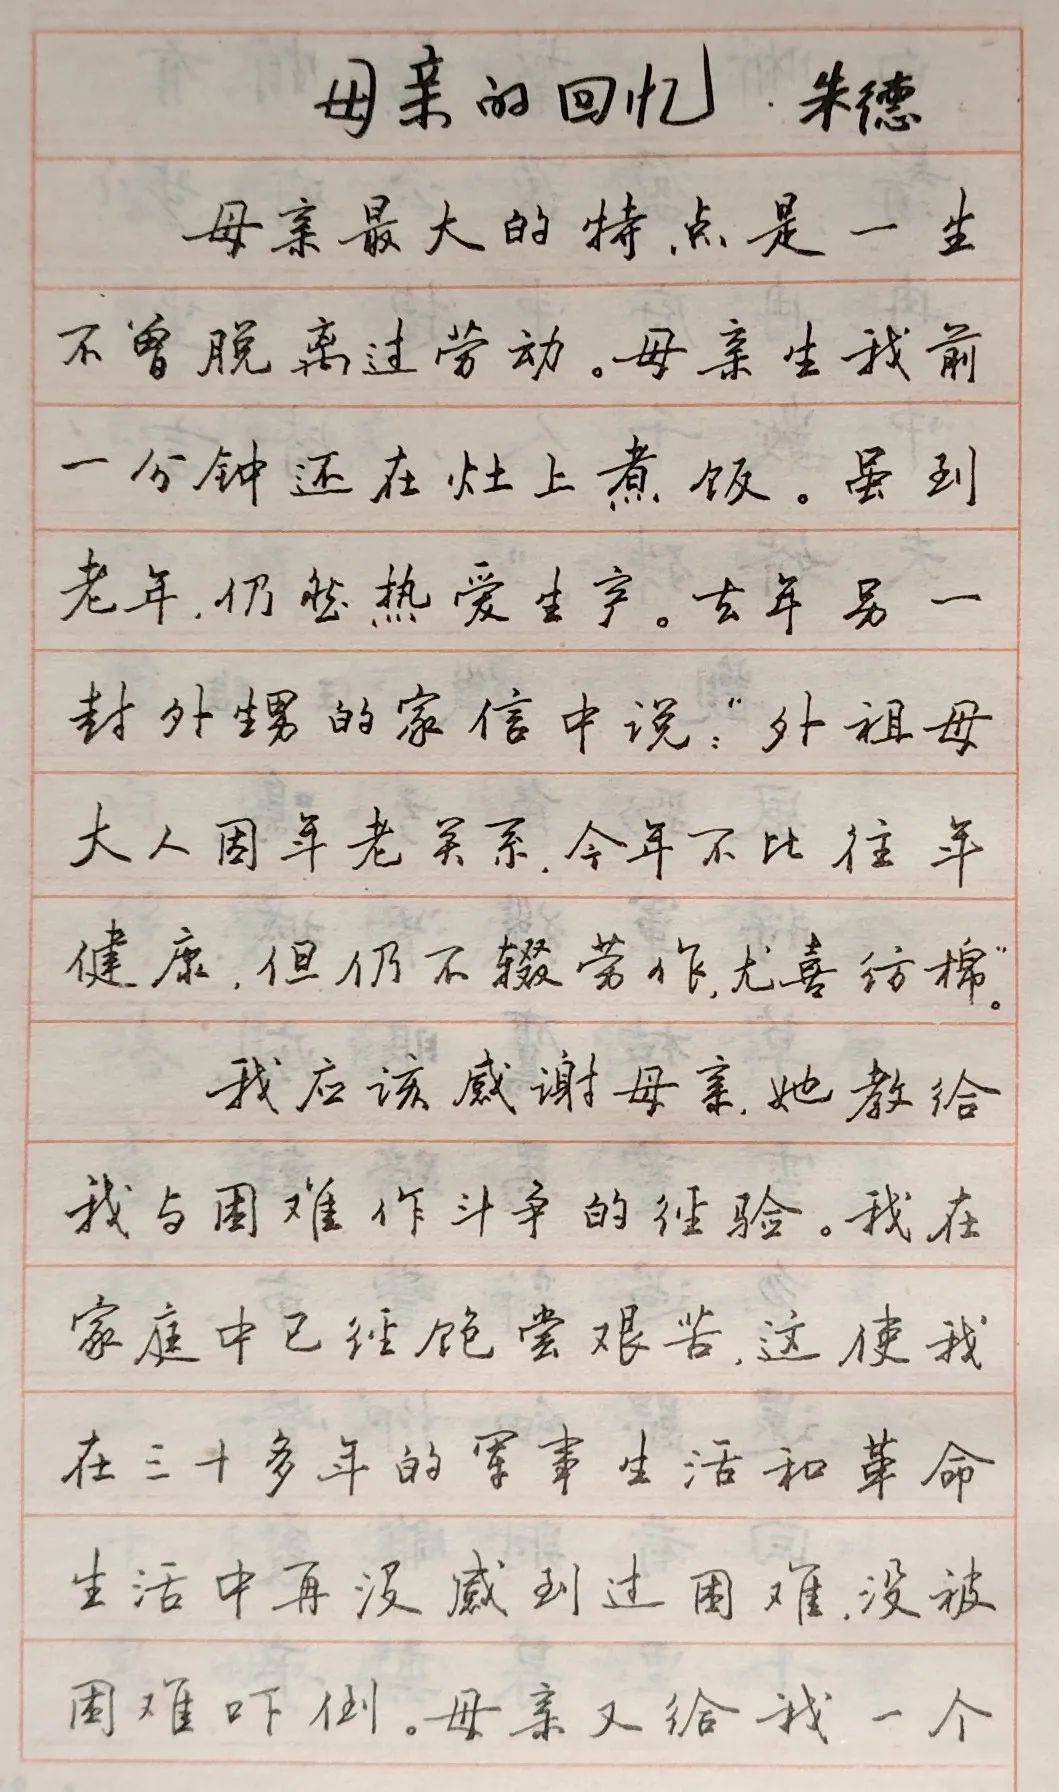 母亲的回忆·朱德
母亲最大的特点是一生
不曾脱离过劳动。母亲生我前
一分钟还在灶上煮饭。虽到
老年,仍然热爱生产。去年另一
封外甥的家信中说:“外祖母
大人因年老关系,今年不比往年
健康,但仍不辍劳作,尤喜纺棉”。
我应该感谢母亲,她教给
我与困难作斗争的经验。我在
家庭中已经饱尝艰苦,这使我
在三十多年的军事生活和革命
生活中再没感到过困难,没被
困难吓倒。母亲又给我一个